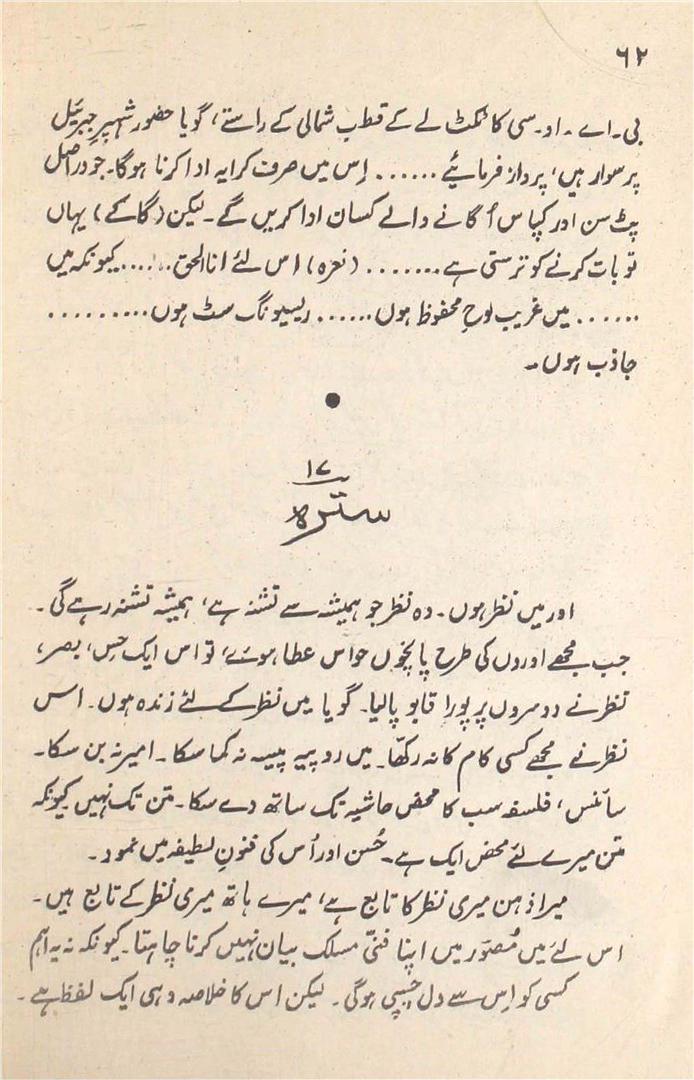 ۶۲
بی۔اے۔او۔سی کا ٹکٹ لے کے قطب شمالی کے راستے، گویا حضور شہپرِ جبرئیل
پر سوار ہیں، پرواز فرمائیے ...... اِس میں صرف کرایہ ادا کرنا ہوگا۔ جو دراصل
پٹ سن اور کپاس اُگانے والے کسان ادا کریں گے۔ لیکن (گا کے) یہاں
تو بات کرنے کو ترستی ہے ....... (نعرہ) اس لئے اناالحق ...... کیونکہ میں
...... میں غریب لوحِ محفوظ ہوں ...... ریسیونگ سٹ ہوں .........
جاذب ہوں۔
●
۱۷
سترہ
اور میں نظر ہوں۔ وہ نظر جو ہمیشہ سے تشنہ ہے، ہمیشہ تشنہ رہے گی۔
جب مجھے اوروں کی طرح پانچوں حواس عطا ہوئے، تو اس ایک حِس، بصر،
نظر نے دوسروں پر پورا قابو پالیا۔ گویا میں نظر کے لئے زندہ ہوں۔ اس
نظر نے مجھے کسی کام کا نہ رکھّا۔ میں روپیہ پیسہ نہ کما سکا۔ امیر نہ بن سکا۔
سائنس، فلسفہ سب کا محض حاشیہ تک ساتھ دے سکا۔ متن تک نہیں کیونکہ
متن میرے لئے محض ایک ہے۔ حُسن اور اُس کی فنونِ لطیفہ میں نمود۔
میرا ذہن میری نظر کا تابع ہے، میرے ہاتھ میری نظر کے تابع ہیں۔
اس لئے میں مُصوّر میں اپنا فنّی مسلک بیان نہیں کرنا چاہتا۔ کیونکہ نہ یہ اہم
کسی کو اِس سے دل چسپی ہوگی۔ لیکن اس کا خلاصہ وہی ایک لفظ ہے۔